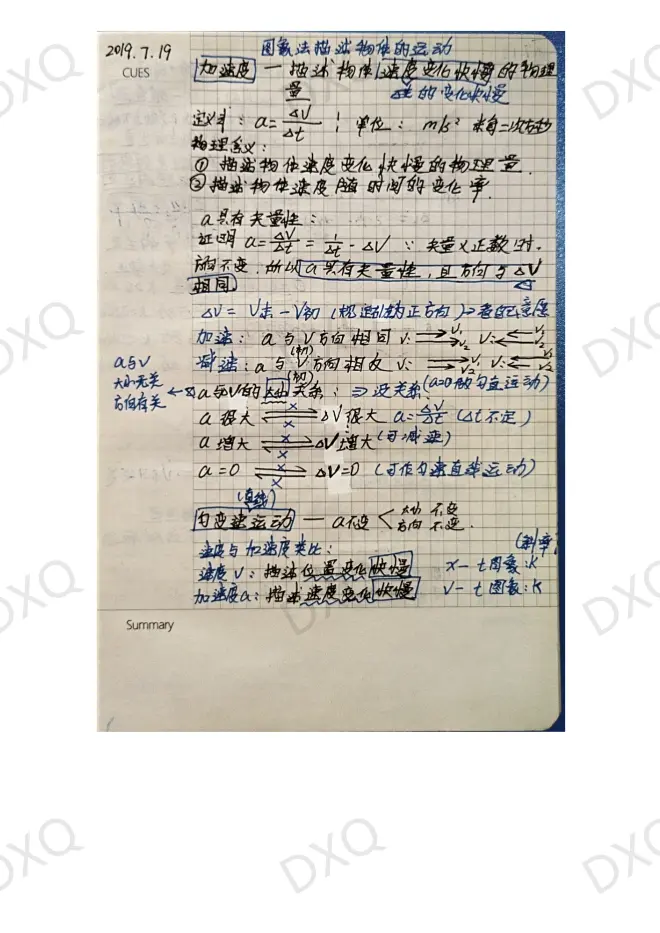 2019.7.19
图象法描述物体的运动
CUES
加速度 — 描述物体速度变化快慢的物理
量 的变化快慢
定义式: a=ΔV/Δt ; 单位: m/s² 米每二次方秒
物理含义:
① 描述物体速度变化快慢的物理量.
② 描述物体速度随时间的变化率.
a具有矢量性:
证明 a=ΔV/Δt = 1/Δt · ΔV ∵ 矢量×正数时.
方向不变.所以a具有矢量性,且方向与ΔV
相同
ΔV = V末 - V初 (规定为正方向)→看自己意愿
加速: a与V(初)方向相同 V: V₁ V₂ V: V₁ V₂
减速: a与V(初)方向相反 V: V₁ V₂ V: V₁ V₂
a与V
大小无关
方向有关
a与V的大小关系: ⇒ 没关系(a=0做匀直运动)
a很大 × × ΔV很大 a=ΔV/Δt (Δt不定)
a增大 × × ΔV增大 (可减速)
a=0 × × ΔV=0 (可作匀速直线运动)
(直线)
匀变速运动 — a不变 < 大小不变
方向不变.
速度与加速度类比: (斜率)
速度V: 描述位置变化快慢 x-t图象:K
加速度a: 描述速度变化快慢 V-t图象:K
Summary
DXQ
DXQ
DXQ
DXQ
DXQ
DXQ
DXQ
DXQ
DXQ